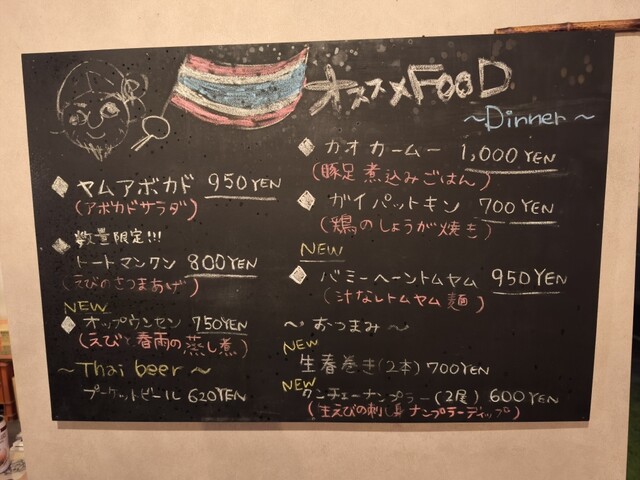 オススメFOOD
~Dinner~
ヤムアボカド 950YEN
(アボカドサラダ)
数量限定!!!
トートマンクン 800YEN
(えびのさつまあげ)
NEW
オップウンセン 750YEN
(えびと春雨の蒸し煮)
~Thai beer~
プーケットビール 620YEN
カオカームー 1,000YEN
(豚足煮込みごはん)
ガイパットキン 700YEN
(鶏のしょうが焼き)
NEW
バミーヘーントムヤム 950YEN
(汁なしトムヤム麺)
~おつまみ~
NEW
生春巻き(2本) 700YEN
NEW
クンチェーナンプラー(2尾) 600YEN
(生えびの刺し身ナンプラーディップ)